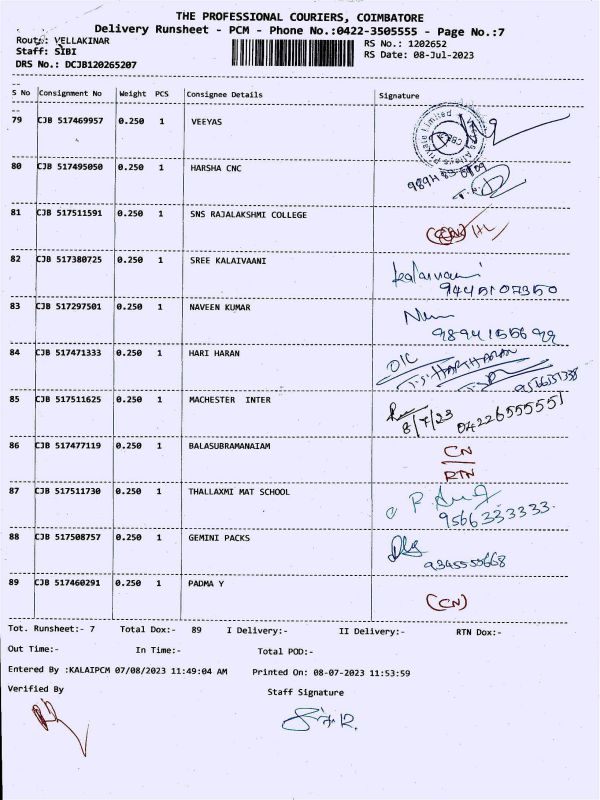 THE PROFESSIONAL COURIERS, COIMBATORE
Delivery Runsheet - PCM - Phone No.:0422-3505555 - Page No.:7
Route: VELLAKINAR
RS No.: 1202652
Staff: SIBI
RS Date: 08-Jul-2023
DRS No.: DCJB120265207
S No Consignment No Weight PCS Consignee Details Signature
79 CJB 517469957 0.250 1 VEEYAS
80 CJB 517495050 0.250 1 HARSHA CNC
81 CJB 517511591 0.250 1 SNS RAJALAKSHMI COLLEGE
82 CJB 517380725 0.250 1 SREE KALAIVAANI
kalaivaani
9445107350
83 CJB 517297501 0.250 1 NAVEEN KUMAR
84 CJB 517471333 0.250 1 HARI HARAN
T.S. HARIHARAN
85 CJB 517511625 0.250 1 MACHESTER INTER
8/7/23 04226555551
86 CJB 517477119 0.250 1 BALASUBRAMANAIAM
CN
RTN
87 CJB 517511730 0.250 1 THALLAXMI MAT SCHOOL
9566333333.
88 CJB 517508757 0.250 1 GEMINI PACKS
9345555668
89 CJB 517460291 0.250 1 PADMA Y
(CN)
Tot. Runsheet:- 7 Total Dox:- 89 I Delivery:- II Delivery:- RTN Dox:-
Out Time:- In Time:- Total POD:-
Entered By :KALAIPCM 07/08/2023 11:49:04 AM Printed On: 08-07-2023 11:53:59
Verified By Staff Signature